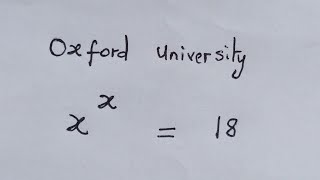 Oxford University
x^x = 18